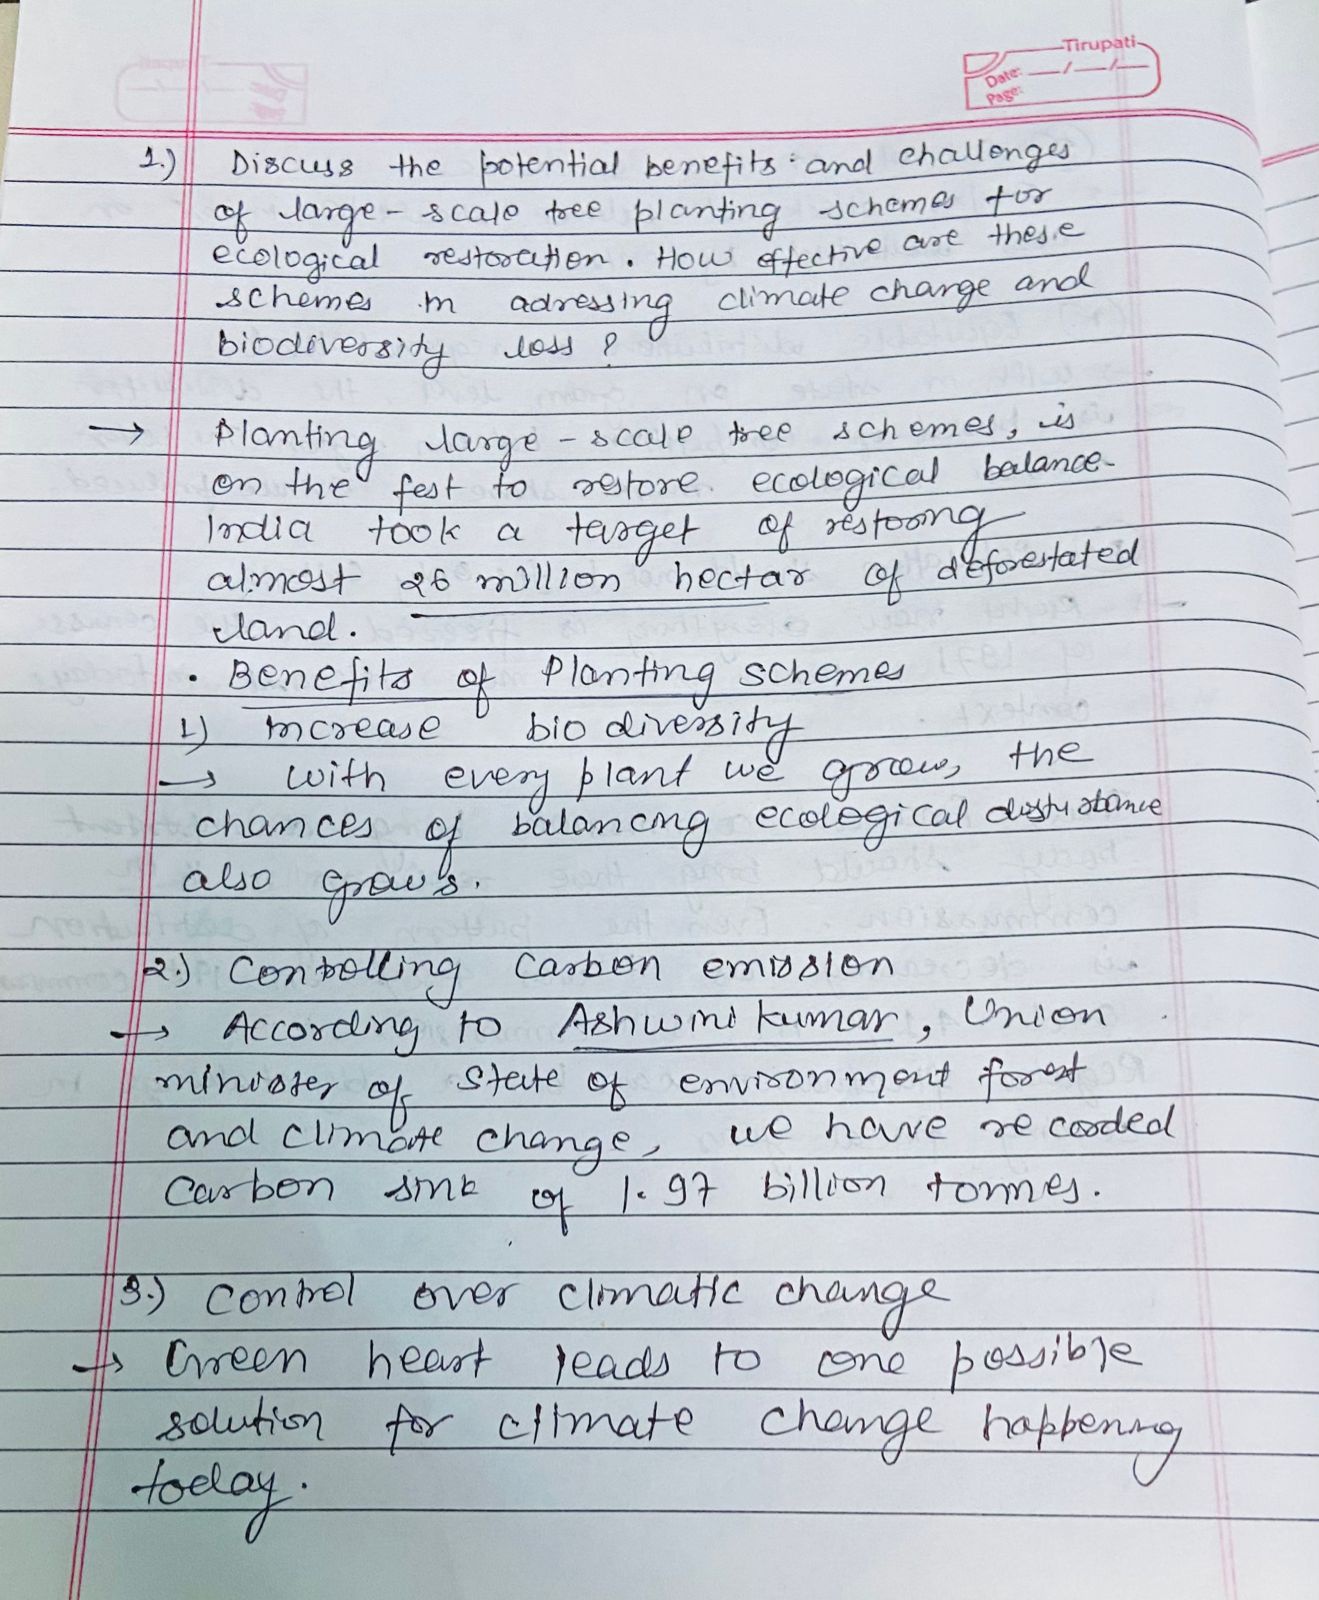 Tirupati
Date: __/__/__
Page:
1.) Discuss the potential benefits and challenges
of large-scale tree planting schemes for
ecological restoration. How effective are these
schemes in adressing climate change and
biodiversity loss?
→ Planting large-scale tree schemes, is
on the fest to restore ecological balance.
India took a target of restoring
almost 26 million hectar of deforestated
land.
• Benefits of Planting schemes
1) increase bio diversity
→ with every plant we grow, the
chances of balancing ecological disturbance
also grows.
2.) Controlling Carbon emission
→ According to Ashwini kumar, Union
minister of State of environment forest
and climate change, we have recorded
Carbon sink of 1.97 billion tonnes.
3.) Control over climatic change
→ Green heart leads to one possible
solution for climate change happening
today.